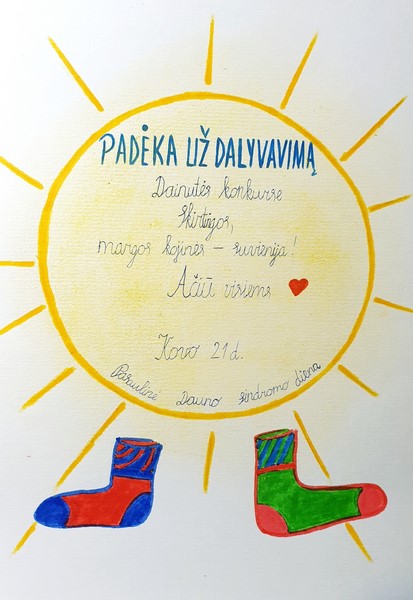 PADĖKA UŽ DALYVAVIMĄ
Dainutės konkurse
Skirtingos,
margos kojinės – suvienija!
Ačiū visiems
Kovo 21 d.
Pasaulinė Dauno sindromo diena